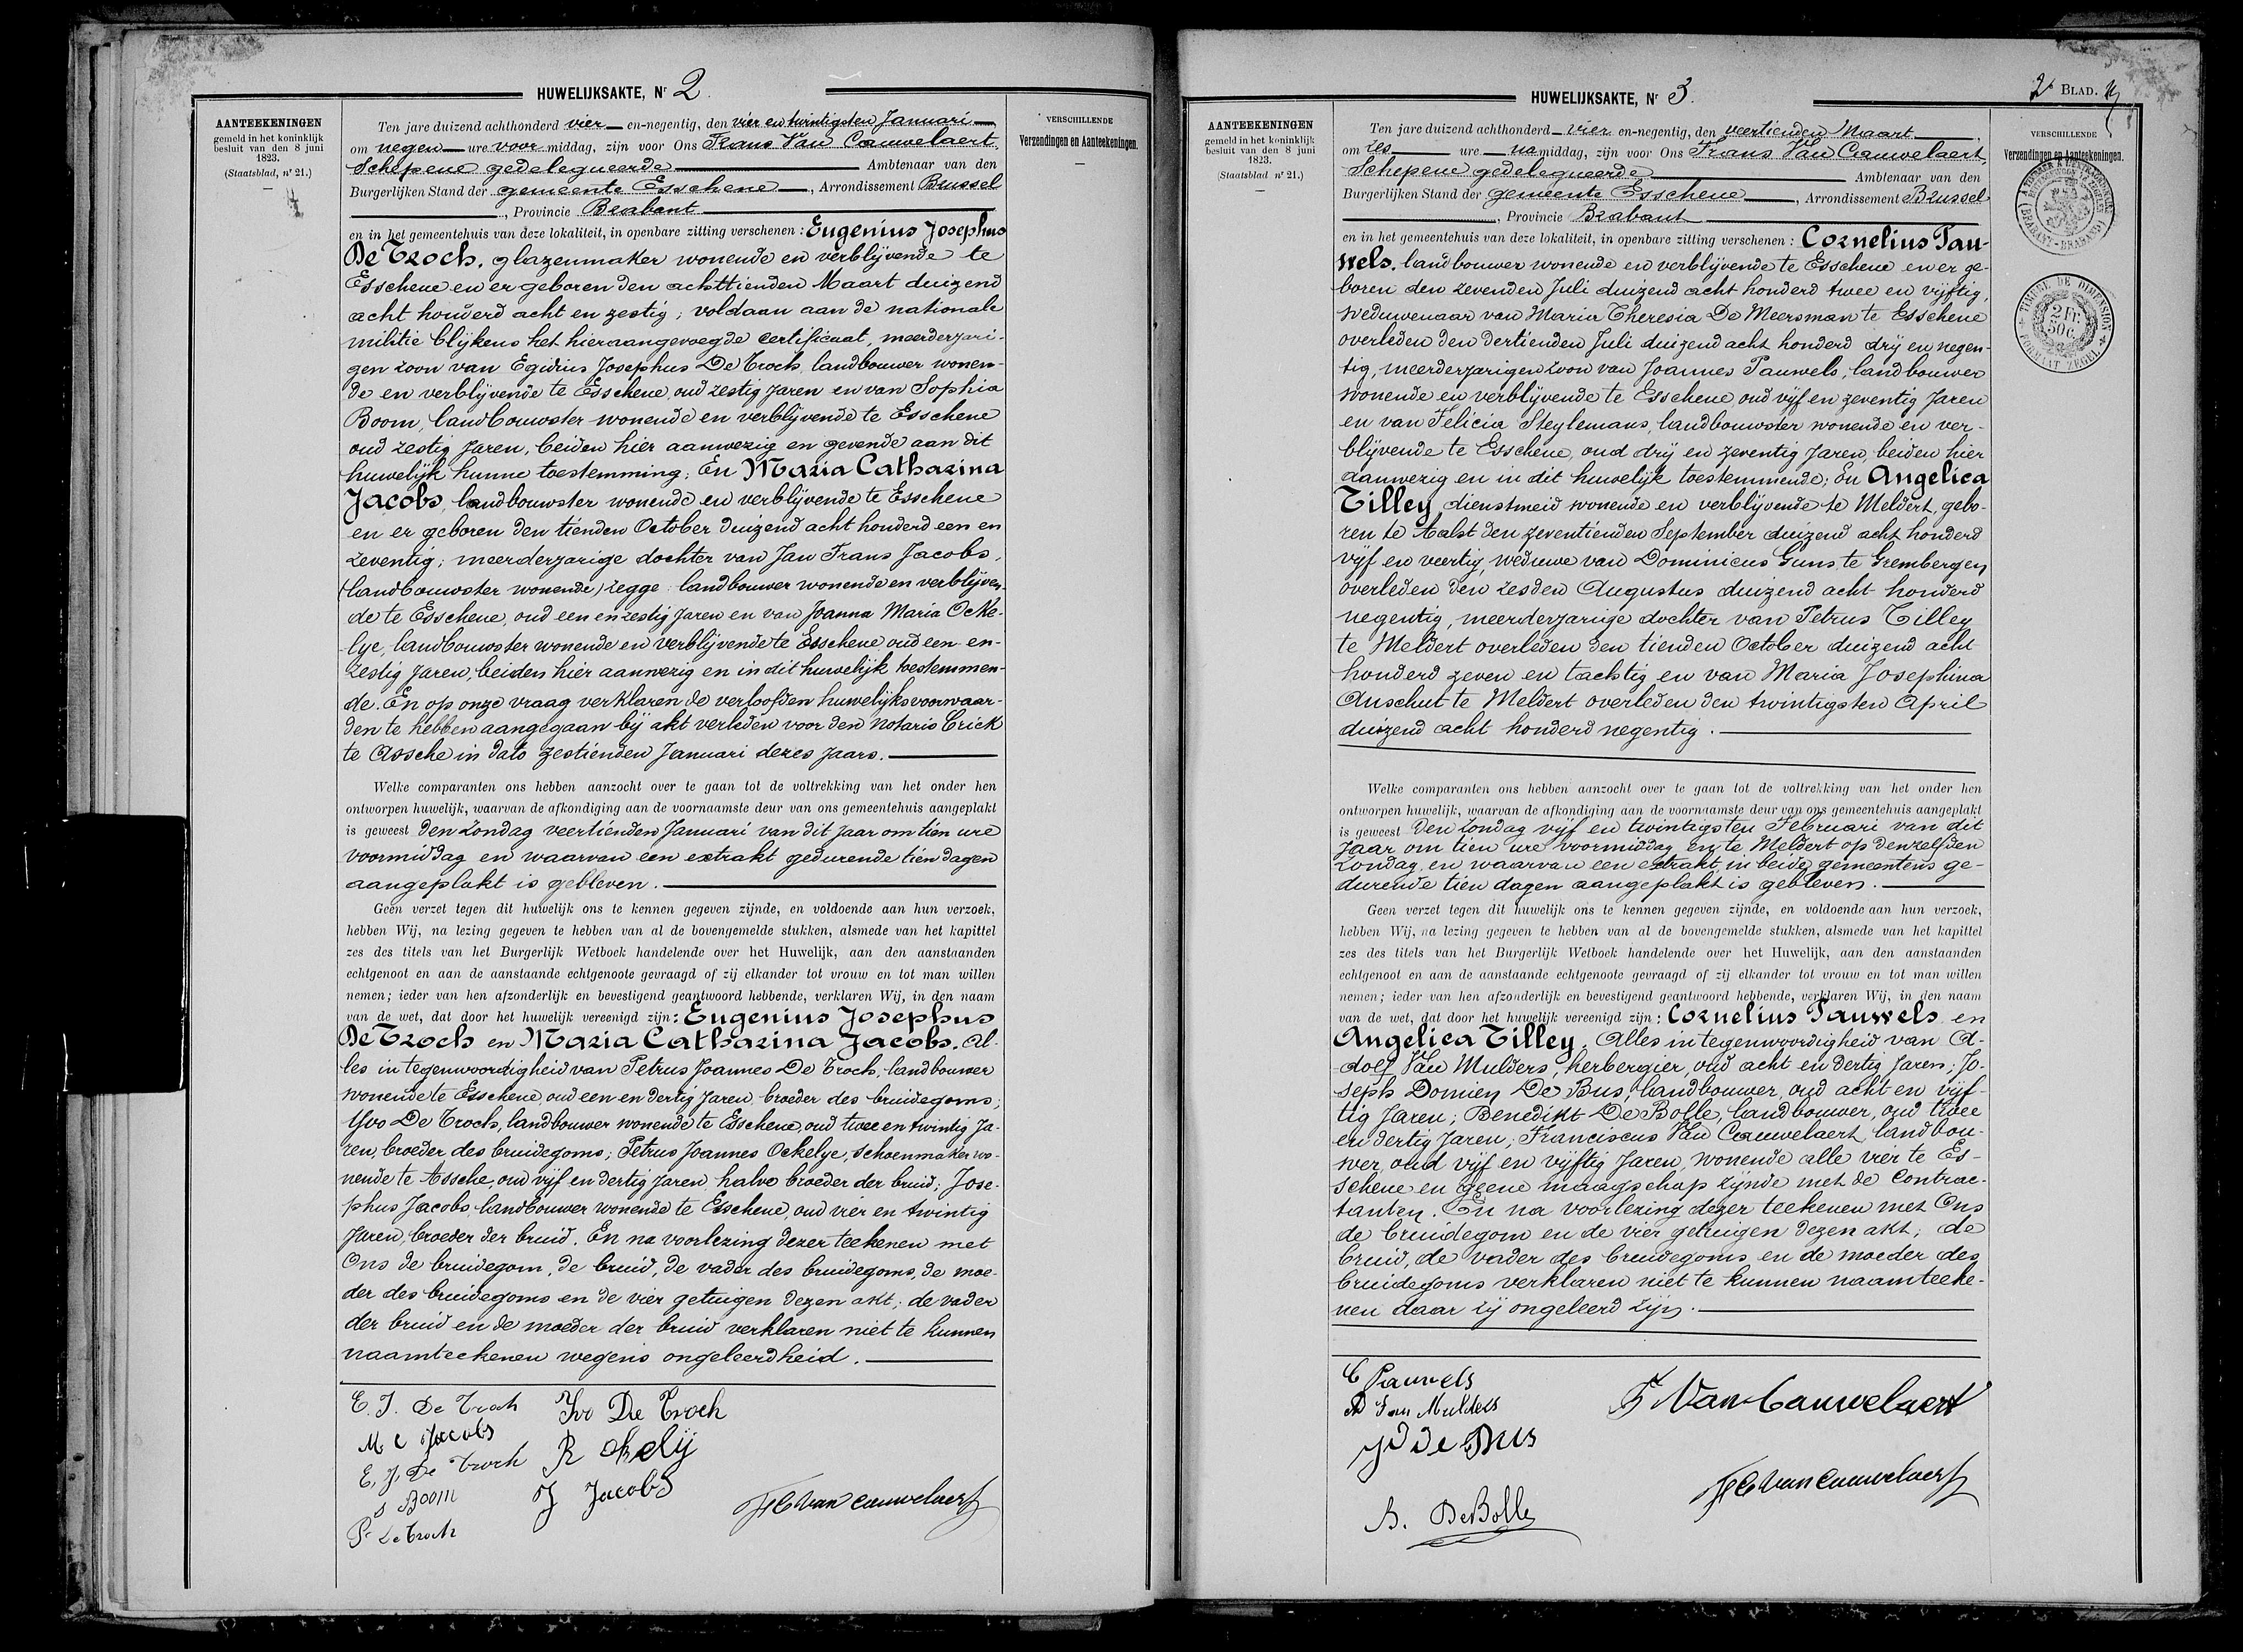 HUWELIJKSAKTE, Nr 2.
AANTEEKENINGEN
gemeld in het koninklijk
besluit van den 8 juni
1823.
(Staatsblad, nr 21.)
VERSCHILLENDE
Verzendingen en Aanteekeningen.
Ten jare duizend achthonderd vier en-negentig, den vier en twintigsten Januari
om negen ure voor middag, zijn voor Ons Frans Van Cauwelaert,
Schepene gedelegueerde Ambtenaar van den
Burgerlijken Stand der gemeente Esschene, Arrondissement Brussel
, Provincie Brabant
en in het gemeentehuis van deze lokaliteit, in openbare zitting verschenen : Eugenius Josephus
De Troch, glazenmaker wonende en verblijvende te
Esschene en er geboren den achttienden Maart duizend
acht honderd acht en zestig; voldaan aan de nationale
militie blijkens het hieraangevoegde certificaat, meerderjari-
gen zoon van Egidius Josephus De Troch, landbouwer wonen-
de en verblijvende te Esschene, oud zestig jaren en van Sophia
Boom, landbouwster wonende en verblijvende te Esschene
oud zestig jaren, beiden hier aanwezig en gevende aan dit
huwelijk hunne toestemming; En Maria Catharina
Jacobs, landbouwster wonende en verblijvende te Esschene
en er geboren den tienden October duizend acht honderd een en
zeventig; meerderjarige dochter van Jan Frans Jacobs,
(landbouwster wonende) zegge landbouwer wonende en verblijven-
de te Esschene, oud een en zestig jaren en van Joanna Maria Ocke-
lye, landbouwster wonende en verblijvende te Esschene oud een en-
zestig jaren, beiden hier aanwezig en in dit huwelijk toestemmen-
de. En op onze vraag verklaren de verloofden huwelijksvoorwaar-
den te hebben aangegaan bij akt verleden voor den Notaris Crick
te Assche in dato zestienden Januari dezes jaars.
Welke comparanten ons hebben aanzocht over te gaan tot de voltrekking van het onder hen
ontworpen huwelijk, waarvan de afkondiging aan de voornaamste deur van ons gemeentehuis aangeplakt
is geweest den zondag veertienden Januari van dit jaar om tien ure
voormiddag en waarvan een extrakt gedurende tien dagen
aangeplakt is gebleven.
Geen verzet tegen dit huwelijk ons te kennen gegeven zijnde, en voldoende aan hun verzoek,
hebben Wij, na lezing gegeven te hebben van al de bovengemelde stukken, alsmede van het kapittel
zes des titels van het Burgerlijk Wetboek handelende over het Huwelijk, aan den aanstaanden
echtgenoot en aan de aanstaande echtgenoote gevraagd of zij elkander tot vrouw en tot man willen
nemen; ieder van hen afzonderlijk en bevestigend geantwoord hebbende, verklaren Wij, in den naam
van de wet, dat door het huwelijk vereenigd zijn : Eugenius Josephus
De Troch en Maria Catharina Jacobs. Al-
les in tegenwoordigheid van Petrus Joannes De Troch, landbouwer
wonende te Esschene, oud een en dertig jaren, broeder des bruidegoms;
Yvo De Troch, landbouwer wonende te Esschene, oud twee en twintig ja-
ren, broeder des bruidegoms; Petrus Joannes Ockelye, schoenmaker wo-
nende te Assche, oud vijf en dertig jaren, halve broeder der bruid; Jose-
phus Jacobs, landbouwer wonende te Esschene, oud vier en twintig
jaren, broeder der bruid. En na voorlezing dezer teekenen met
Ons de bruidegom, de bruid, de vader des bruidegoms, de moe-
der des bruidegoms en de vier getuigen dezen akt; de vader
der bruid en de moeder der bruid verklaren niet te kunnen
naamteekenen wegens ongeleerdheid.
E. J. De Troch
M C Jacobs
E. J. De Troch
S Boom
P. De Troch
Ivo De Troch
J Jacobs
F C Van Cauwelaert
HUWELIJKSAKTE, Nr 3.
2e BLAD.
AANTEEKENINGEN
gemeld in het koninklijk
besluit van den 8 juni
1823.
(Staatsblad nr 21.)
VERSCHILLENDE
Verzendingen en Aanteekeningen.
TIMBRE DE DIMENSION
2 Fr.
50 c.
FORMAAT ZEGEL
Ten jare duizend achthonderd vier en-negentig, den veertienden Maart
om zes ure na middag, zijn voor Ons Frans Van Cauwelaert,
Schepene gedelegueerde Ambtenaar van den
Burgerlijken Stand der gemeente Esschene, Arrondissement Brussel
, Provincie Brabant
en in het gemeentehuis van deze lokaliteit, in openbare zitting verschenen : Cornelius Pau-
wels, landbouwer wonende en verblijvende te Esschene en er ge-
boren den zevenden Juli duizend acht honderd twee en vijftig,
weduwenaar van Maria Theresia De Meersman te Esschene
overleden den dertienden Juli duizend acht honderd drij en negen-
tig, meerderjarigen zoon van Joannes Pauwels, landbouwer
wonende en verblijvende te Esschene oud vijf en zeventig jaren
en van Felicia Steylemans, landbouwster wonende en ver-
blijvende te Esschene, oud drij en zeventig jaren, beiden hier
aanwezig en in dit huwelijk toestemmende; En Angelica
Tilley, dienstmeid wonende en verblijvende te Meldert, gebo-
ren te Aalst den zeventienden September duizend acht honderd
vijf en veertig, weduwe van Dominicus Guns te Grembergen
overleden den zesden Augustus duizend acht honderd
negentig, meerderjarige dochter van Petrus Tilley
te Meldert overleden den tienden October duizend acht
honderd zeven en tachtig en van Maria Josephina
Anschut te Meldert overleden den twintigsten April
duizend acht honderd negentig.
Welke comparanten ons hebben aanzocht over te gaan tot de voltrekking van het onder hen
ontworpen huwelijk, waarvan de afkondiging aan de voornaamste deur van ons gemeentehuis aangeplakt
is geweest den zondag vijf en twintigsten Februari van dit
jaar om tien ure voormiddag en te Meldert op denzelfden
zondag, en waarvan een extrakt in beide gemeentens ge-
durende tien dagen aangeplakt is gebleven.
Geen verzet tegen dit huwelijk ons te kennen gegeven zijnde, en voldoende aan hun verzoek,
hebben Wij, na lezing gegeven te hebben van al de bovengemelde stukken, alsmede van het kapittel
zes des titels van het Burgerlijk Wetboek handelende over het Huwelijk, aan den aanstaanden
echtgenoot en aan de aanstaande echtgenoote gevraagd of zij elkander tot vrouw en tot man willen
nemen; ieder van hen afzonderlijk en bevestigend geantwoord hebbende, verklaren Wij, in den naam
van de wet, dat door het huwelijk vereenigd zijn : Cornelius Pauwels en
Angelica Tilley. Alles in tegenwoordigheid van A-
dolf Van Mulders, herbergier, oud acht en dertig jaren; Jo-
seph Domien De Bus, landbouwer, oud acht en vijf-
tig jaren; Benedikt De Bolle, landbouwer, oud twee
en dertig jaren; Franciscus Van Cauwelaert, landbou-
wer, oud vijf en vijftig jaren, wonende alle vier te Es-
schene en geene maagschap zijnde met de contrac-
tanten. En na voorlezing dezer teekenen met Ons
de bruidegom en de vier getuigen dezen akt; de
bruid, de vader des bruidegoms en de moeder des
bruidegoms verklaren niet te kunnen naamteeke-
nen daar zij ongeleerd zijn.
C Pauwels
AD Van Mulders
J D De Bus
B. DeBolle
F Van Cauwelaert
F C Van Cauwelaert